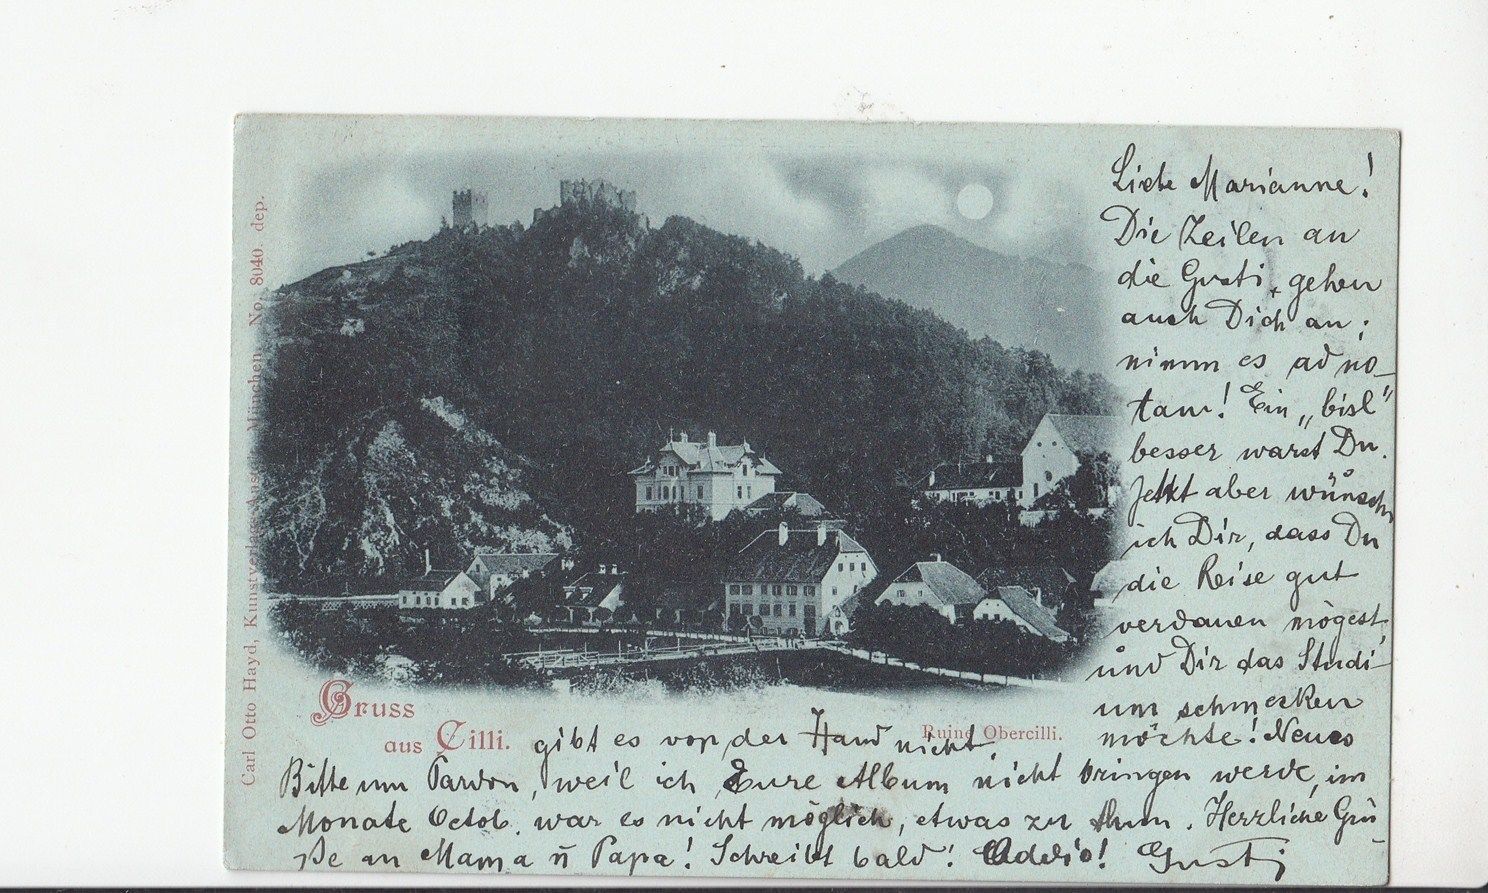 Liebe Marianne!
Die Zeilen an
die Gusti, gehen
auch Dich an;
nimm es ad no-
tam! Ein „bisl"
besser warst Du.
Jetzt aber wünsch
ich Dir, dass Du
die Reise gut
verdauen mögest,
und Dir das Studi-
um schmecken
möchte! Neues
gibt es vor der Hand nicht.
Bitte um Pardon, weil ich Eure Album nicht bringen werde, im
Monate Octob. war es nicht möglich, etwas zu thun. Herrliche Grü-
ße an Mama ū Papa! Schreibt bald! Addio! Gusti
Gruss
aus Cilli.
Ruine Obercilli.
Carl Otto Hayd, Kunstverlags-Anst. München. No. 8040. dep.